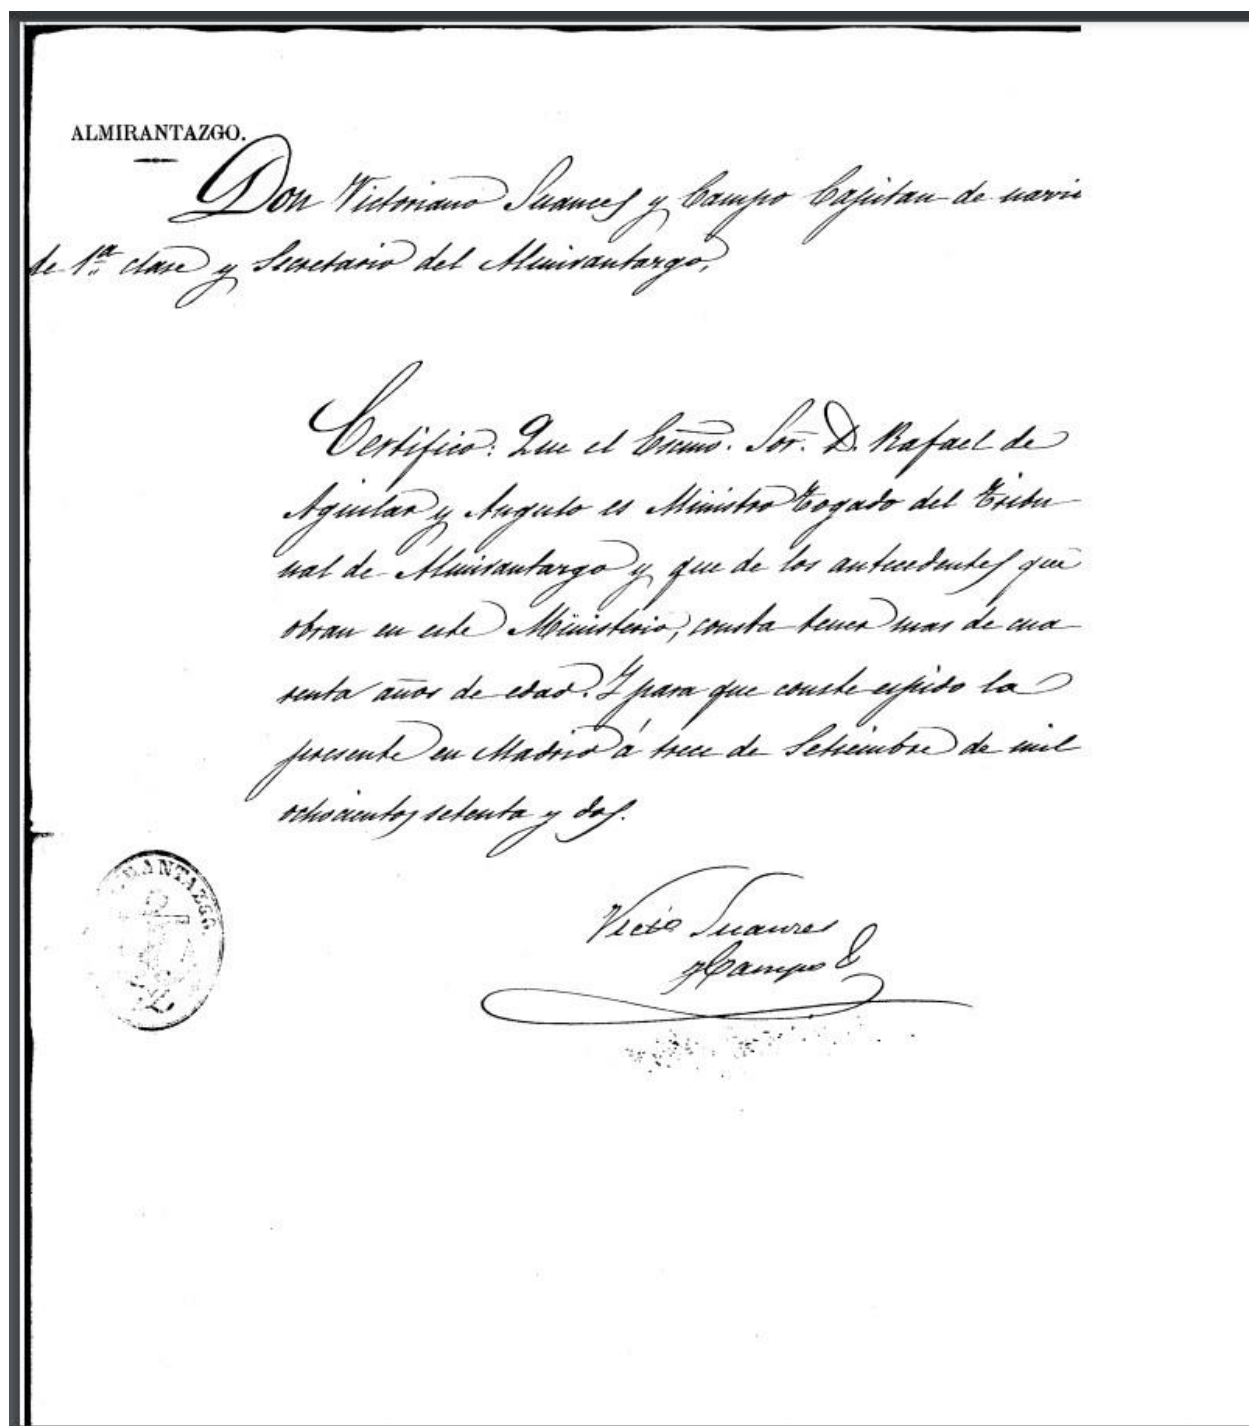 ALMIRANTAZGO.
Don Victoriano Suances y Campo Capitan de navio
de 1ª clase y Secretario del Almirantazgo,
Certifico: Que el Escmo. Sor. D. Rafael de
Aguilar y Angulo es Ministro Togado del Tribu
nal de Almirantazgo y que de los antecedentes que
obran en este Ministerio, consta tener mas de cua
renta años de edad. Y para que conste espido la
presente en Madrid á trece de Setiembre de mil
ochocientos setenta y dos.
Victo Suances
y Campo